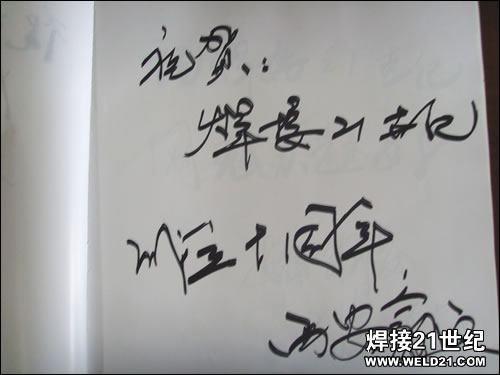 祝贺:
焊接21世纪
创立十周年
西安
焊接21世纪
WWW.WELD21.COM